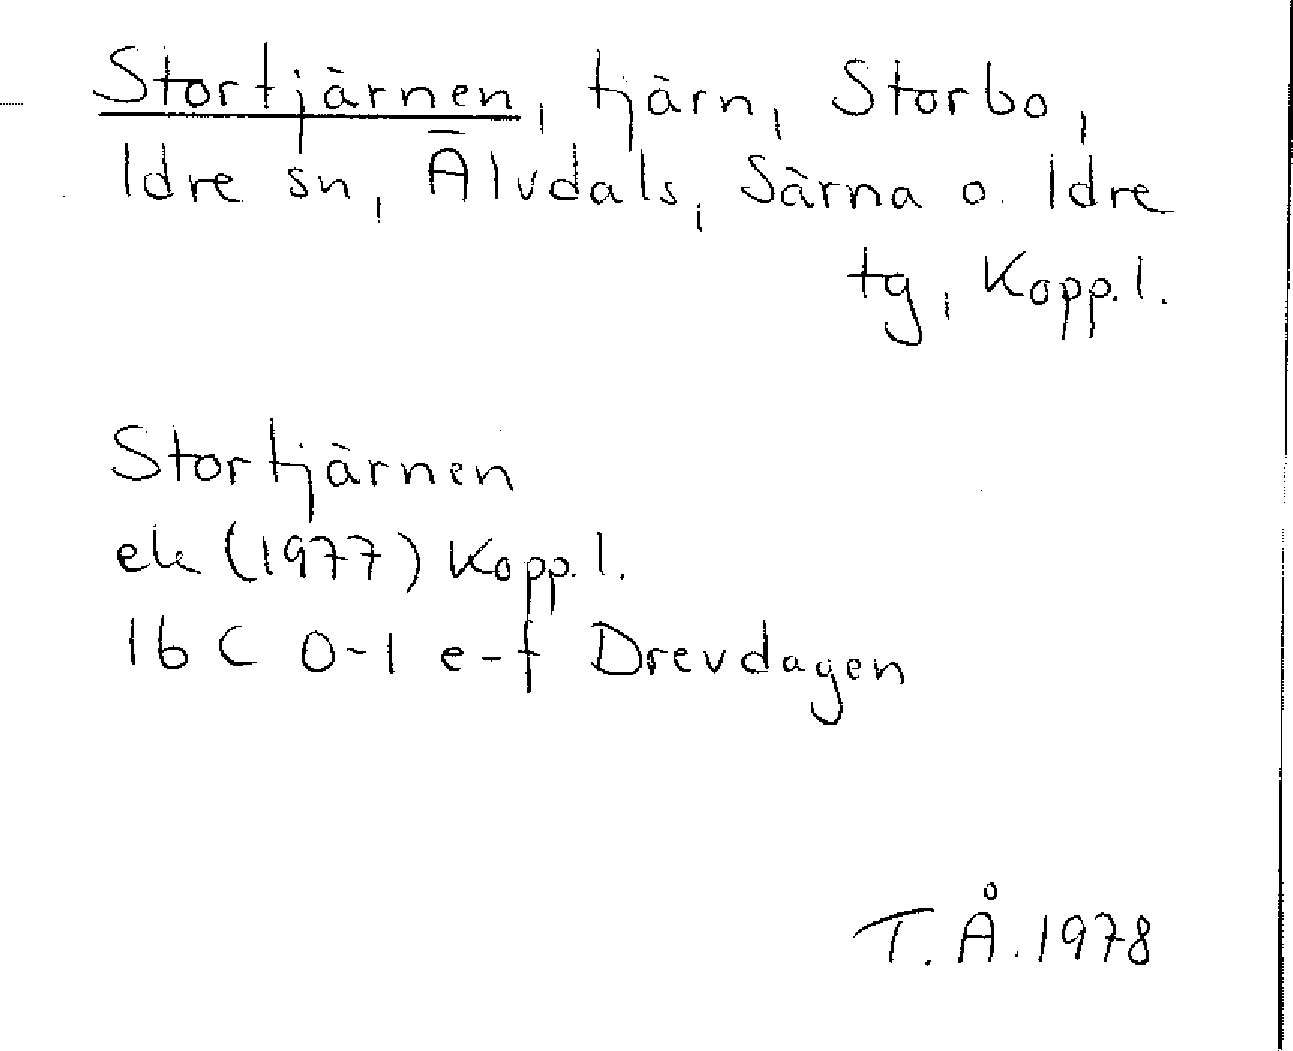 Stortjärnen, tjärn, Storbo,
Idre sn, Älvdals, Särna o. Idre
tg, Kopp.l.
Stortjärnen
ek (1977) Kopp.l.
16 C 0-1 e-f Drevdagen
T.Å.1978